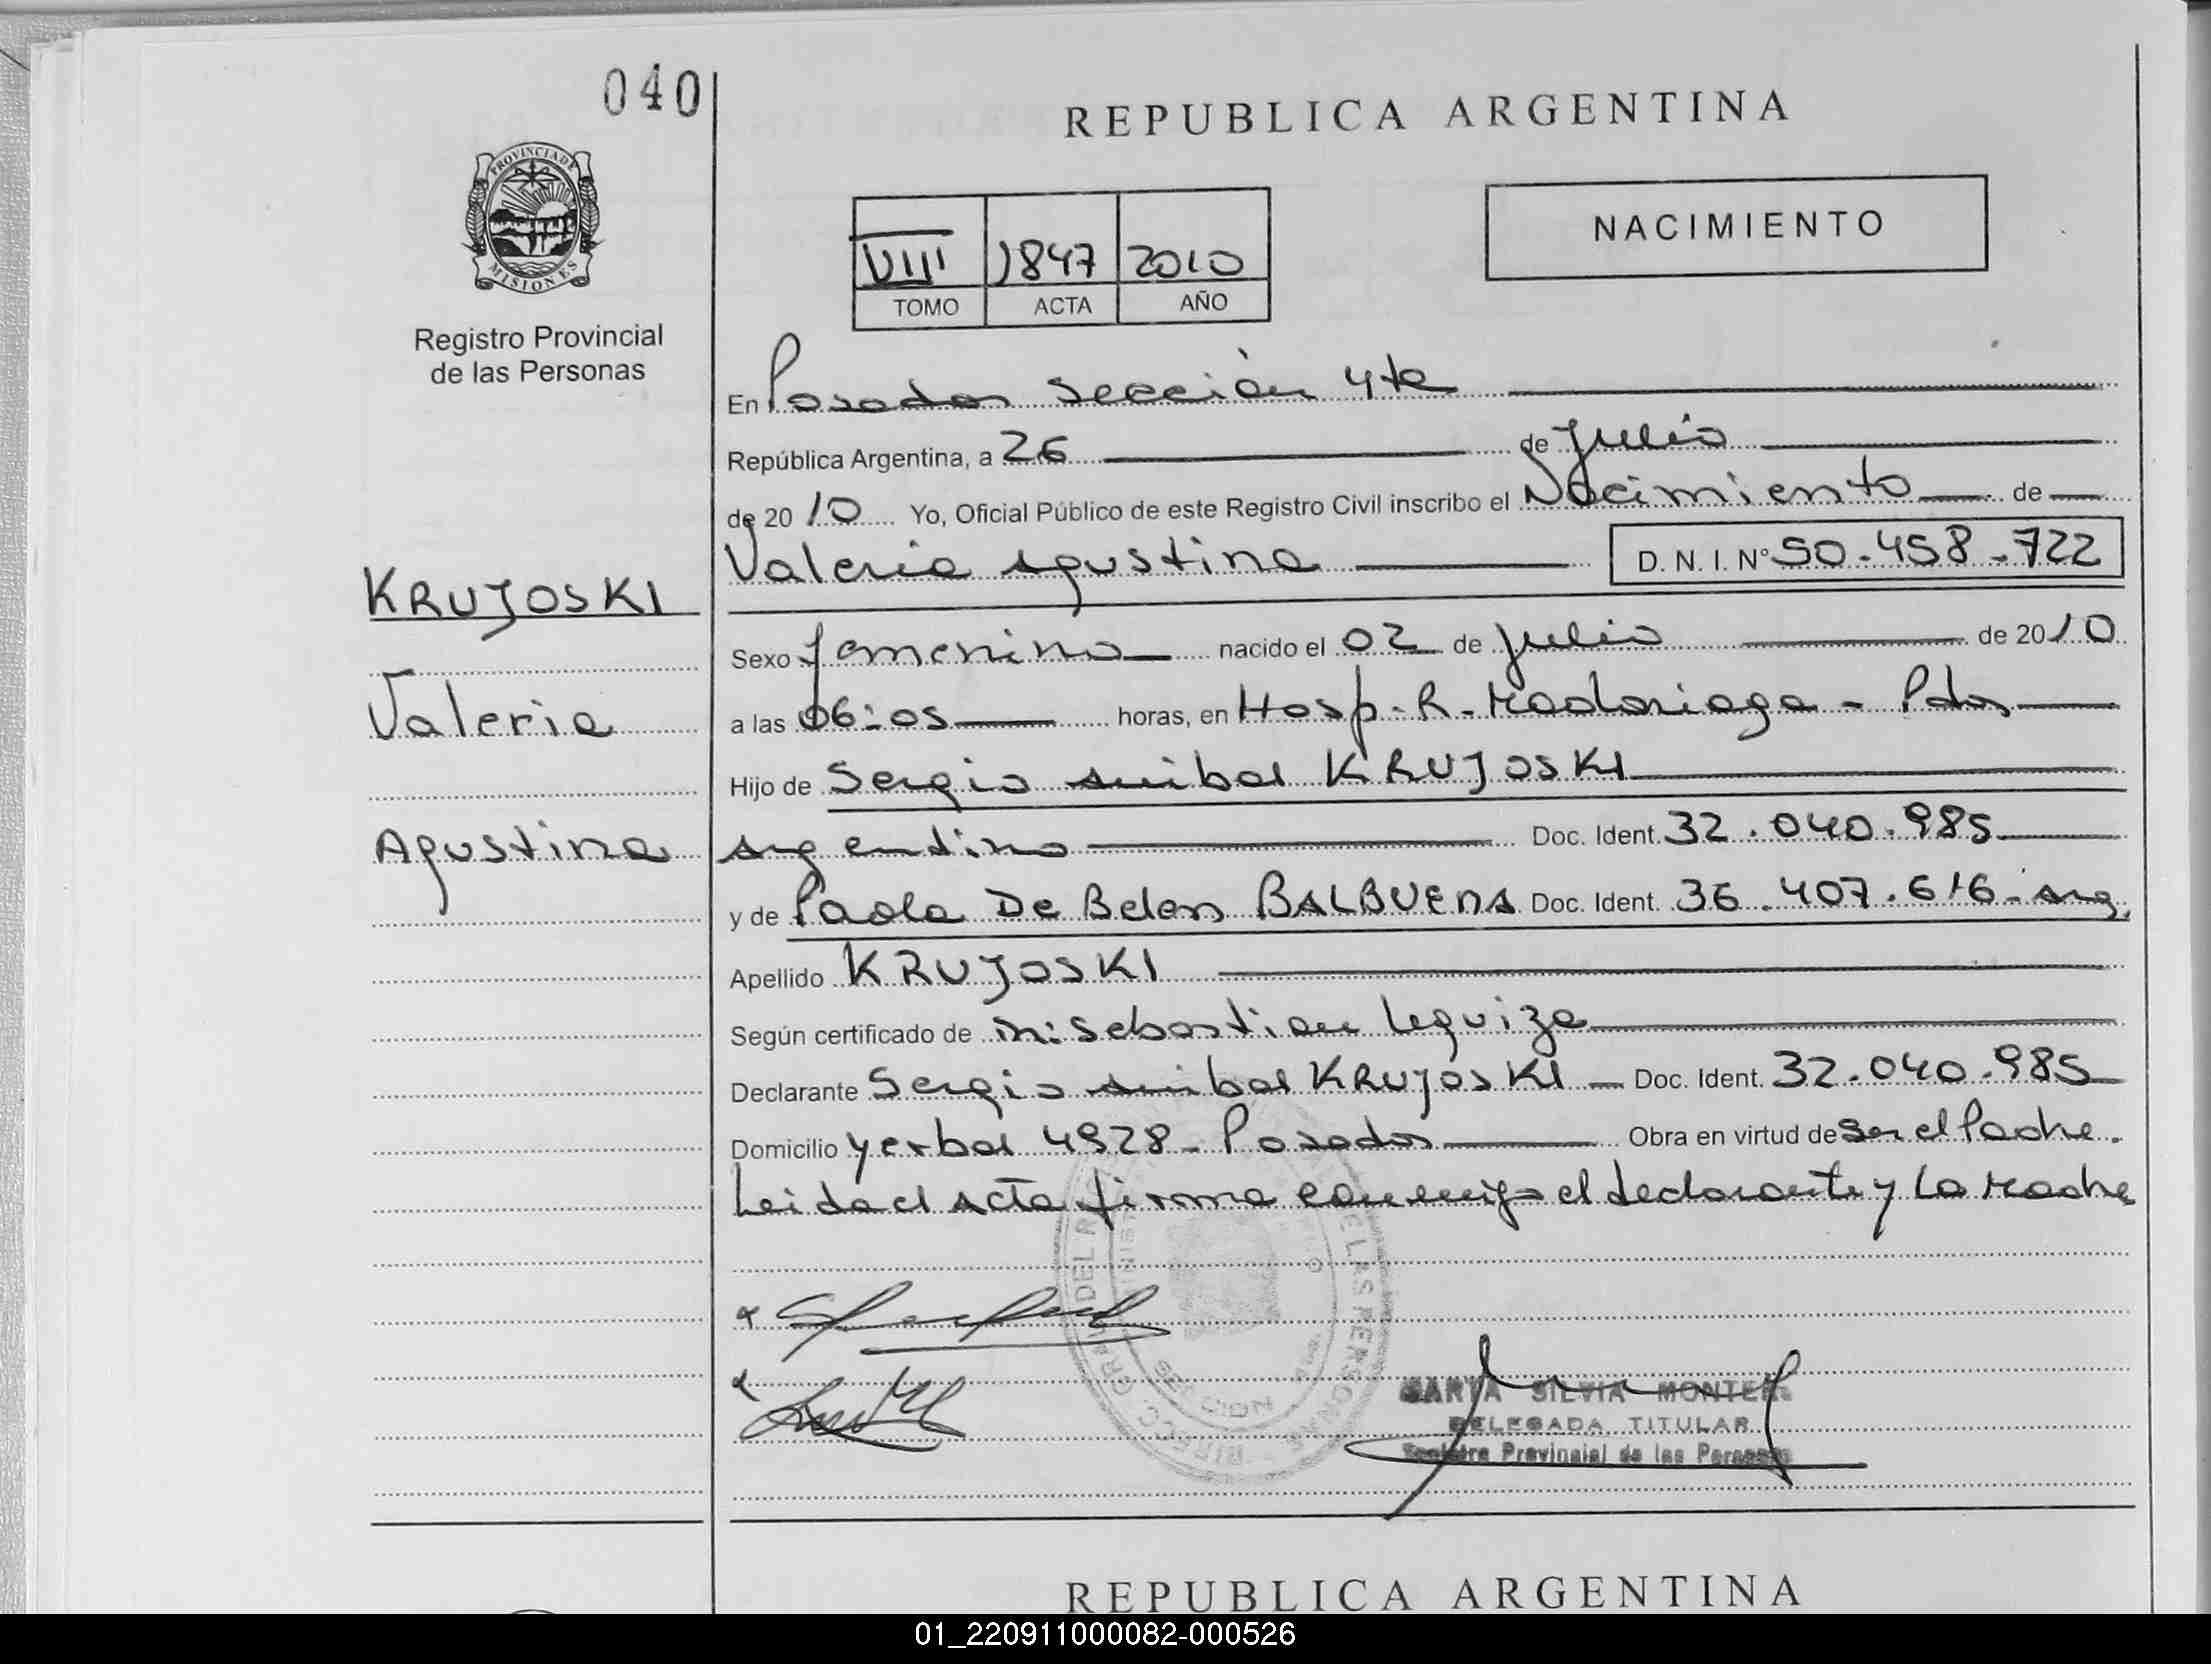 040
REPUBLICA ARGENTINA
PROVINCIA DE
MISIONES
NACIMIENTO
VIII 1847 2010
TOMO ACTA AÑO
Registro Provincial
de las Personas
En Posadas Sección 4ta
República Argentina, a 26 de Julio
de 2010 Yo, Oficial Público de este Registro Civil inscribo el Nacimiento de
Valeria Agustina D. N. I. N° 50.458.722
KRUJOSKI
Sexo femenino nacido el 02 de Julio de 2010
Valeria
a las 06:05 horas, en Hosp. R. Madariaga - Pdas
Hijo de Sergio Anibal KRUJOSKI
Agustina
Argentino Doc. Ident. 32.040.985
y de Paola De Belen BALBUENA Doc. Ident. 36.407.616 - Arg.
Apellido KRUJOSKI
Según certificado de Sebastian Leguiza
Declarante Sergio Anibal KRUJOSKI Doc. Ident. 32.040.985
Domicilio yerbal 4928 - Posadas Obra en virtud de Ser el Padre.
Leida el Acta firma conmigo el declarante y La Madre
SILVIA
DELEGADA TITULAR
Registro Provincial de las Personas
REPUBLICA ARGENTINA
01_220911000082-000526